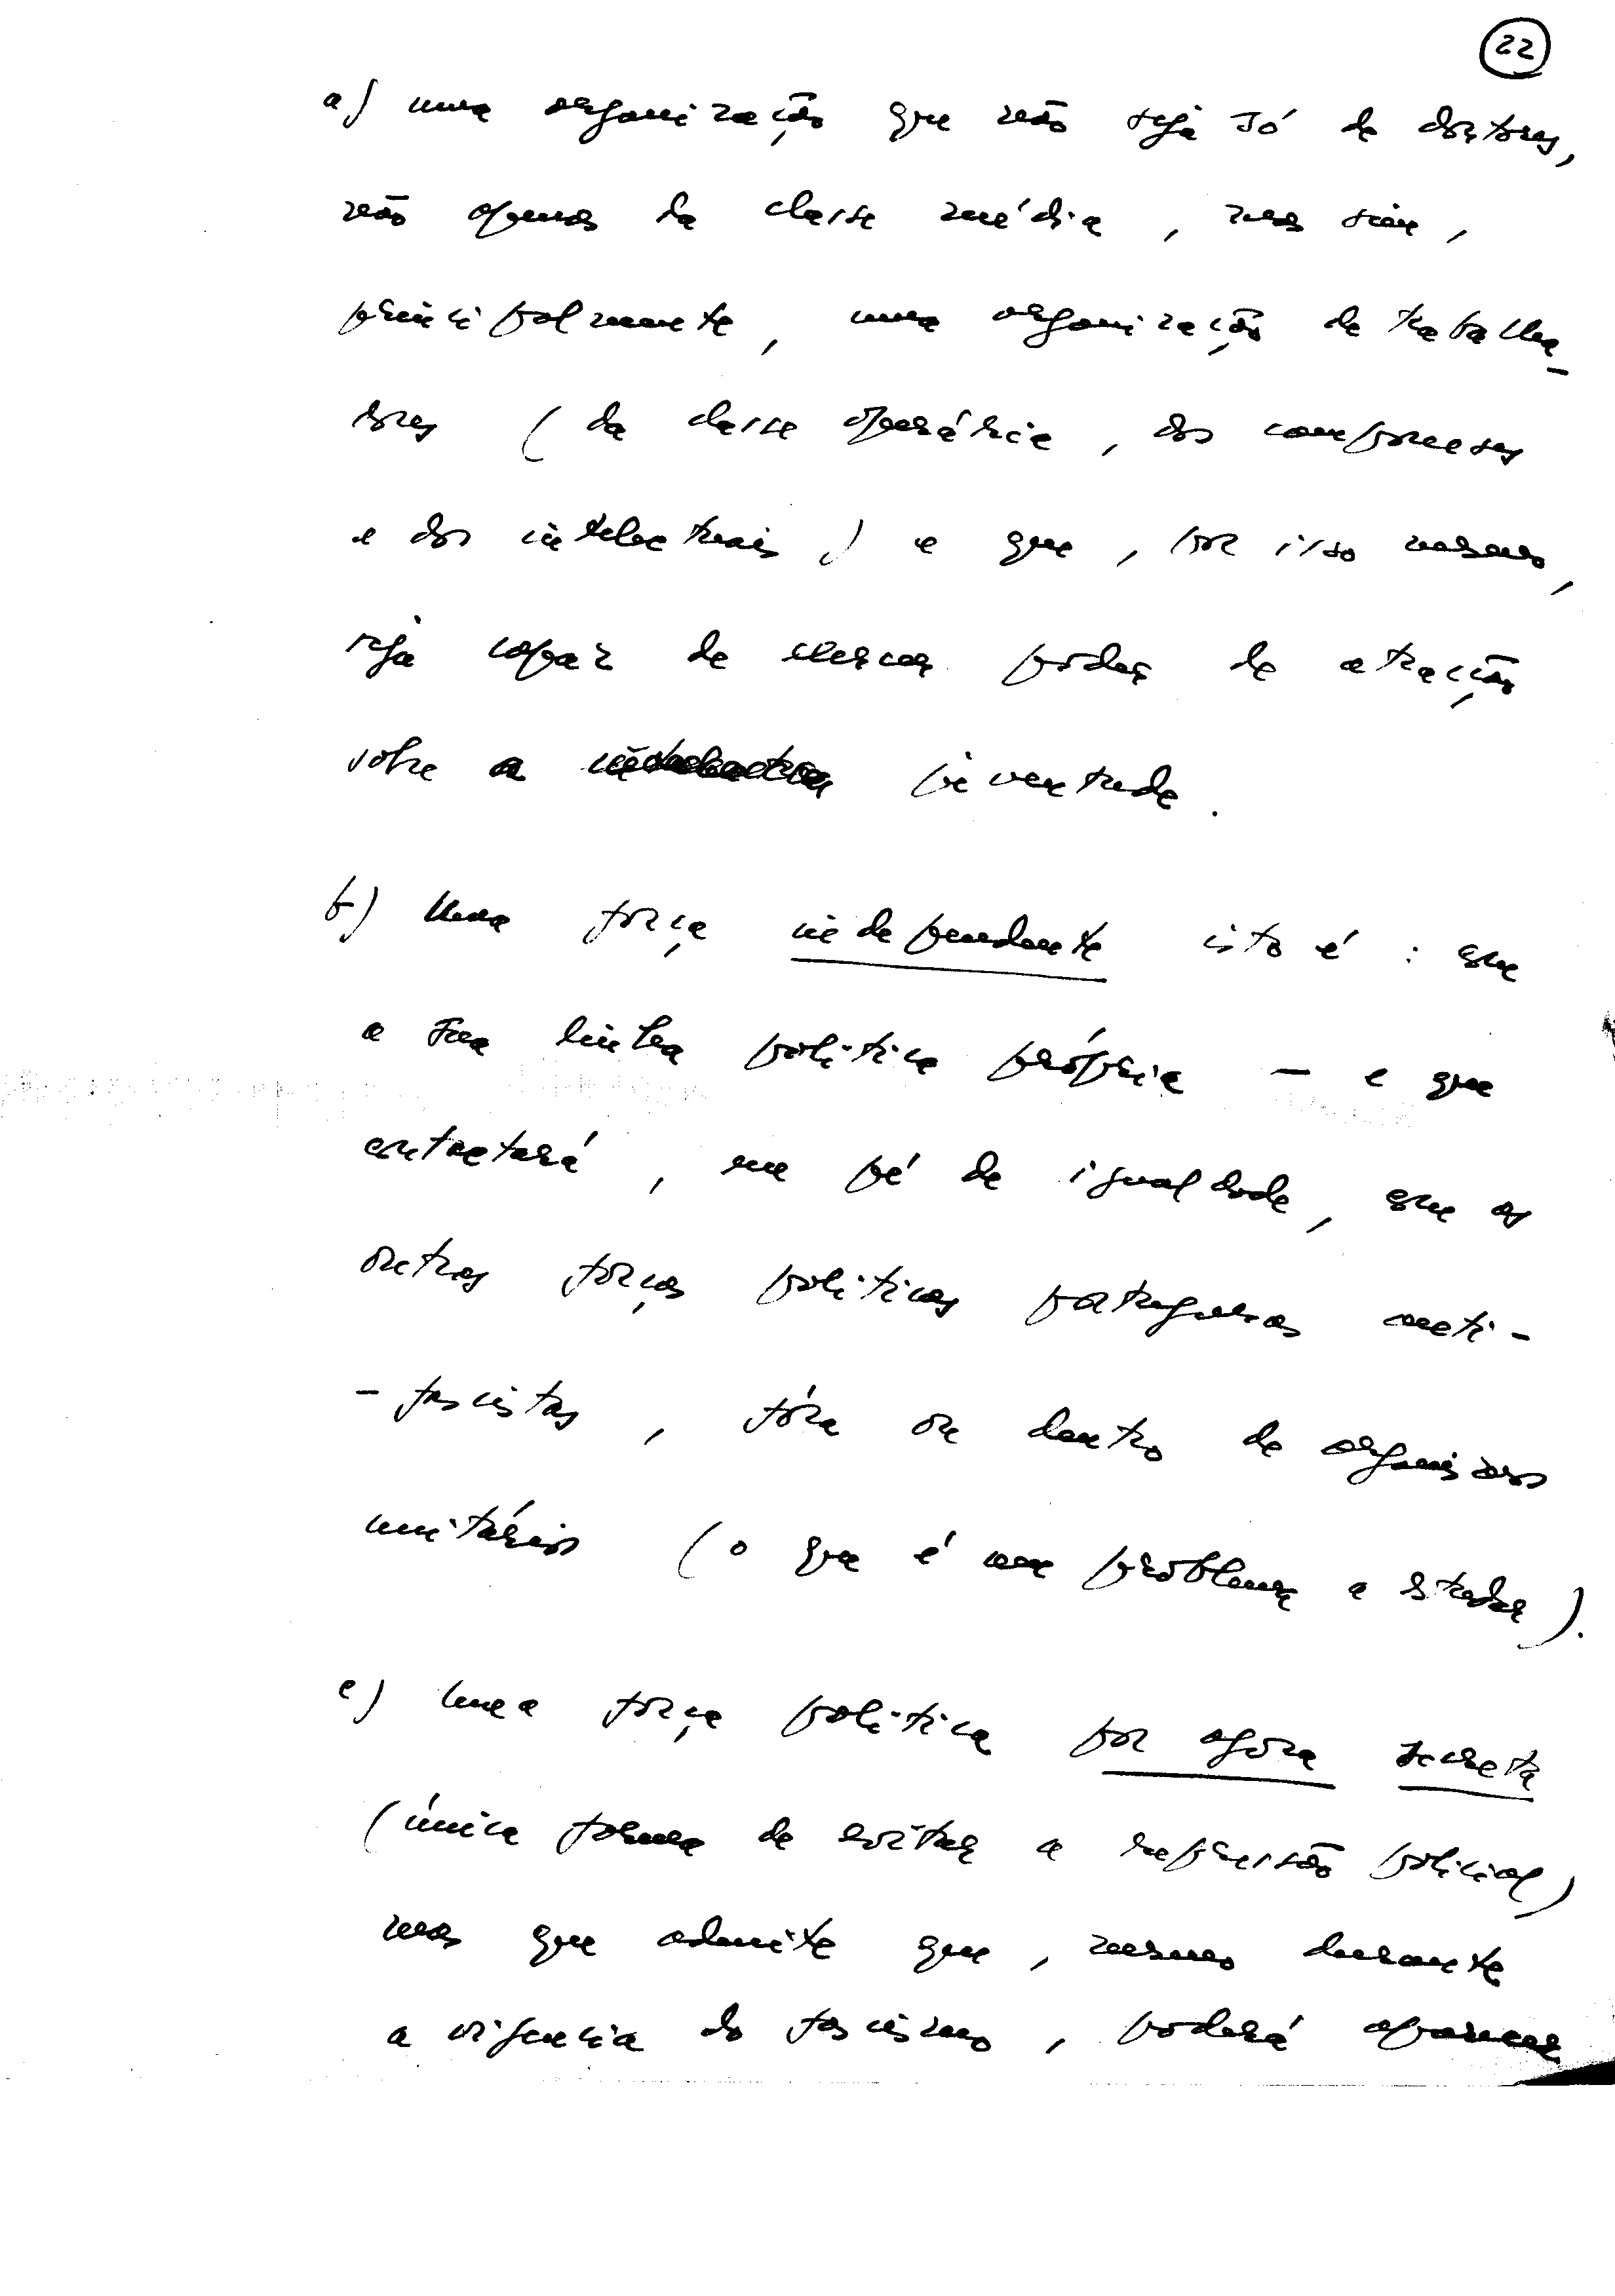 22
a) uma organização que não seja só de doutores,
não apenas da classe média, mas sim,
principalmente, uma organização de trabalha-
dores (da classe operária, dos camponeses
e dos intelectuais) e que, por isso mesmo,
seja capaz de exercer poder de atracção
sobre a juventude.
b) Uma força independente isto é: com
a sua linha política própria — e que
contactará, em pé de igualdade, com as
outras forças políticas portuguesas anti-
-fascistas, fóra ou dentro de organismos
unitários (o que é um problema a estudar).
c) Uma força política por agora secreta
(única forma de evitar a repressão policial)
mas que admite que, mesmo durante
a vigencia do fascismo, poderá aparecer